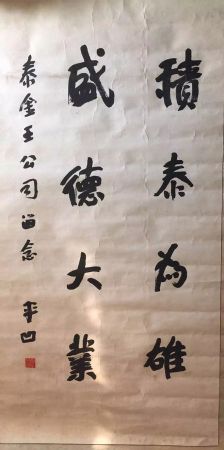 積泰為雄
盛德大業
泰金王公司留念 平凹